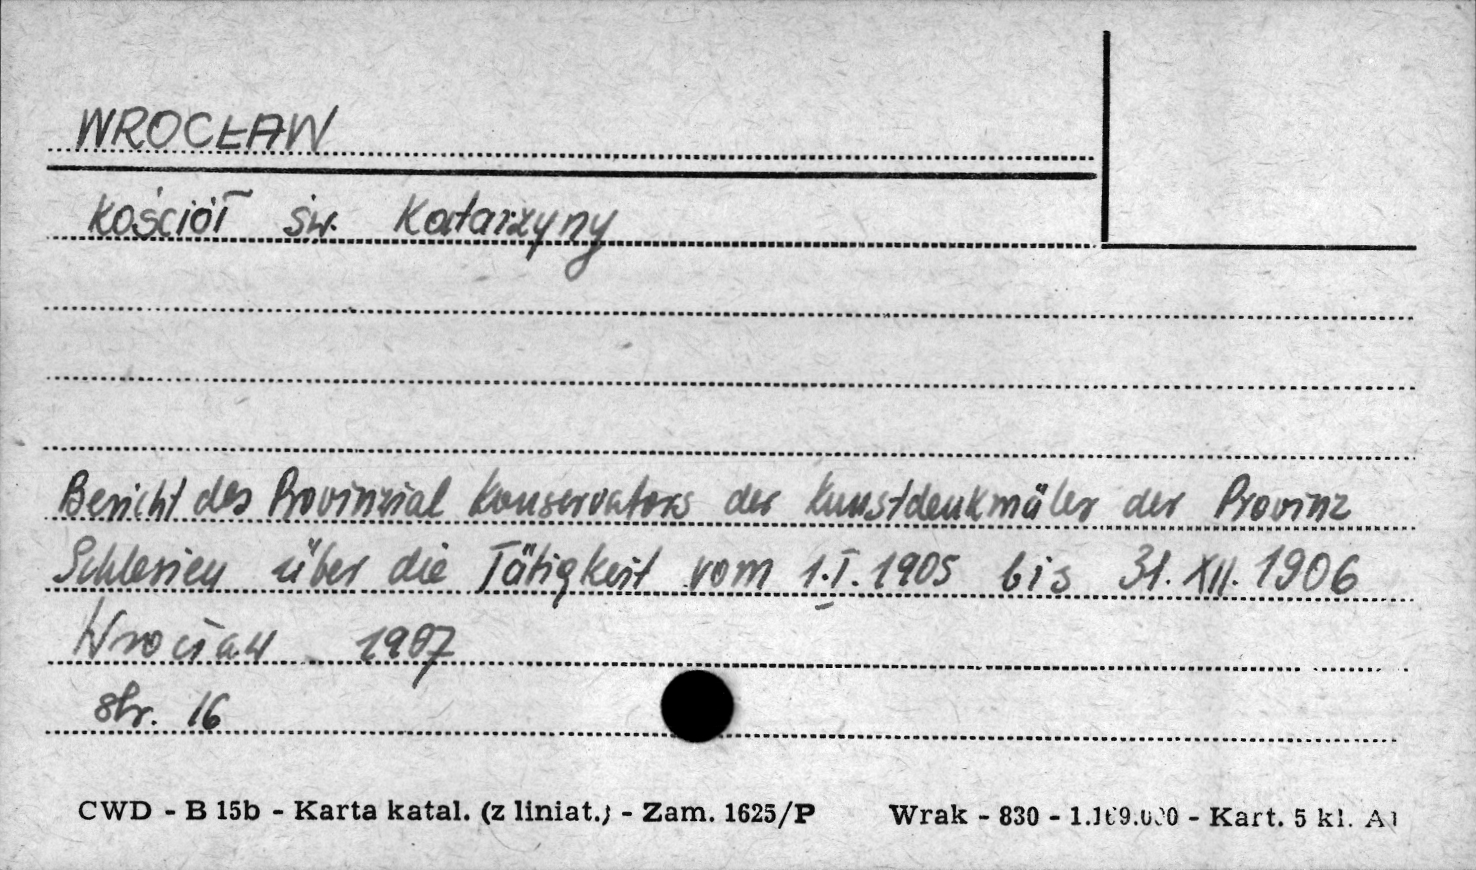 WROCŁAW
Kościół św. Katarzyny
Bericht des Provinzial Konservators der Kunstdenkmäler der Provinz
Schlesien über die Tätigkeit vom 1.I.1905 bis 31.XII.1906
Wrocław 1907
str. 16
CWD - B 15b - Karta katal. (z liniat.) - Zam. 1625/P Wrak - 830 - Kart. 5 kl.